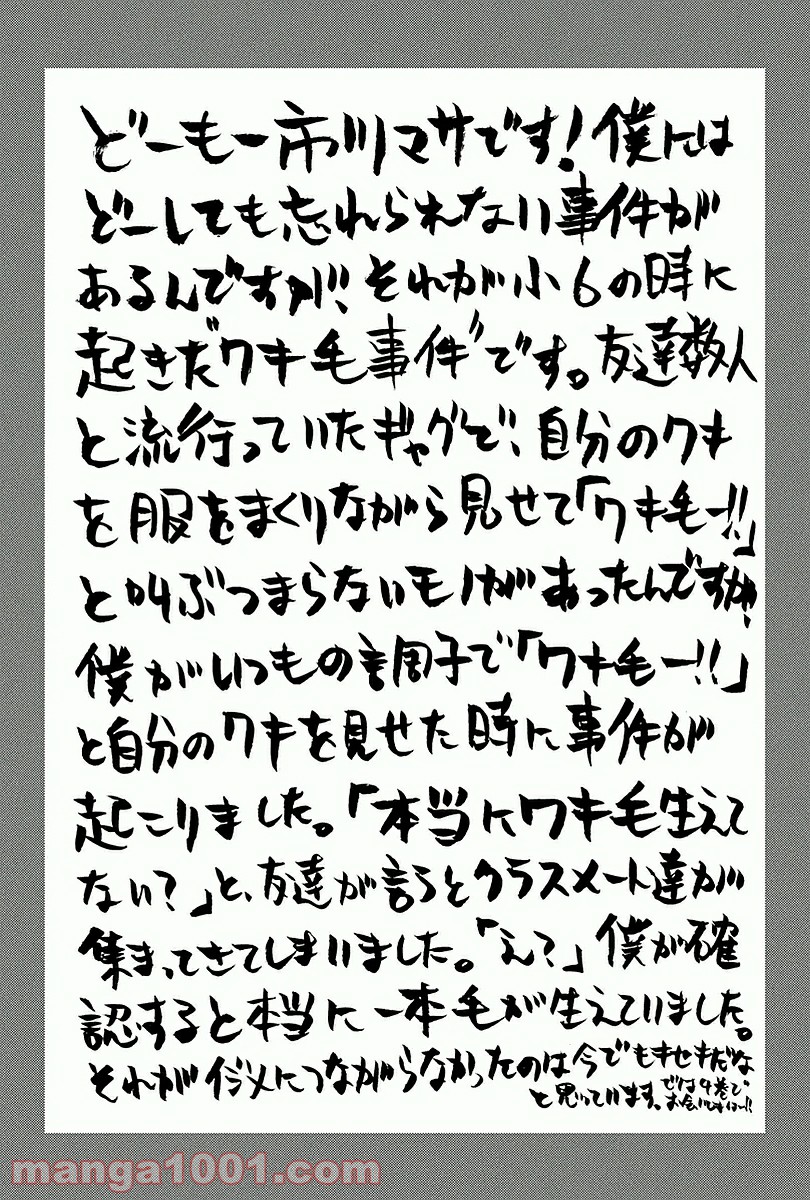 どーもー市川マサです！僕には
どーしても忘れられない事件が
あるんですが!! それが小6の時に
起きた"ワキ毛事件"です。友達数人
と流行っていたギャグで、自分のワキ
を服をまくりながら見せて「ワキ毛ー!!」
と叫ぶつまらないモノがあったんですが、
僕がいつもの調子で「ワキ毛ー!!」
と自分のワキを見せた時に事件が
起こりました。「本当にワキ毛生えて
ない？」と、友達が言うとクラスメート達が
集まってきてしまいました。「え？」僕が確
認すると本当に一本毛が生えていました。
それがイジメにつながらなかったのは今でもキセキだな
と思っています。
では4巻で
お会いしましょー!!
manga1001.com